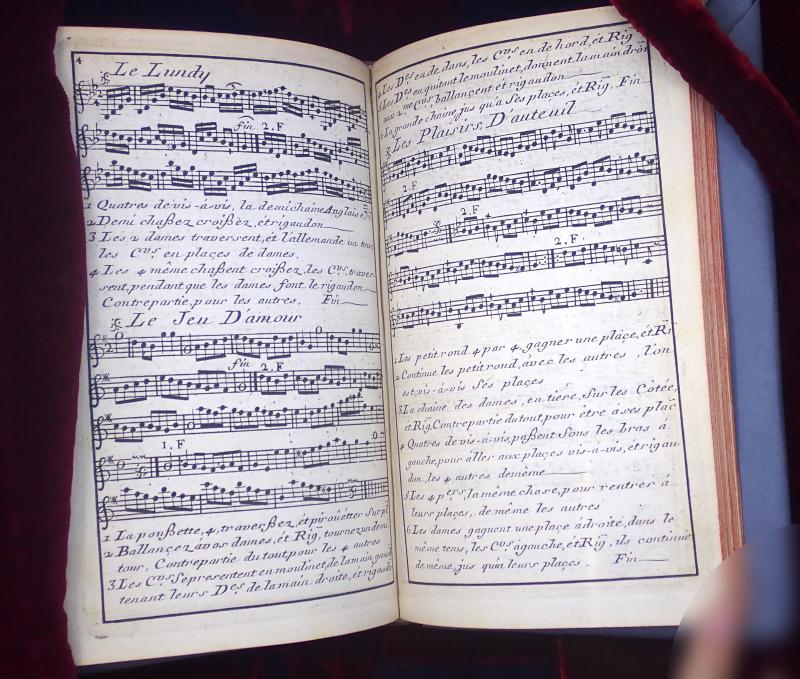 4
Le Lundy
fin 2. F
1 Quatres de vis-à-vis, la demi chaine Anglaise,
2 Demi chaßez croißèz, ét rigaudon
3 Les 2 dames traversent, ét l'allemande un tour
les C.vrs en plaçes de dames,
4 Les 4 même chaßent croißez, les C.vrs, traver-
sent, pendant que les dames font, le rigaudon
Contrepartie, pour les autres, Fin
Le Jeu D'amour
fin 2. F
1. F
1 La poußette, 4, traverßez, ét piroüetter Sur
2 Ballançez a vos dames, ét Rig. tournez un demi
tour, Contrepartie du tout pour les 4 autres
3. Les C.vrs Se presentent en moulinet, de la main gauche
tenant leurs D.es de la main droite, ét rigaudon
Les D.es en de dans, les C.vrs en de hord, ét Rig.
Les D.es en quitant le moulinet, donnent la main droit
aux 2.me C.vrs ballançent ét rigaudon
La grande chaine jus qu'a Ses plaçes, ét Rig. Fin
Les Plaisirs, D'auteuil
2. F
2. F
2. F
1 Les petit rond 4 par 4, gagner une plaçe, ét Ri
2 Continue les petit rond, avec les autres, l'on
est, vis-à-vis Sés plaçes
3 La chaine des dames, entière, Sur les Côtée,
ét Rig. Contrepartie du tout, pour être a ses plaç
4 Quatres de vis-à-vis, paßent Sous les bras a
gauche, pour aller aux plaçes vis-à-vis, ét rigau-
don, les 4 autres demême
5 Les 4 p.ers la même chose, pour rentrer à
leurs plaçes, de même les autres
6 Les dames gagnent une plaçe à droite, dans le
même tems, les C.vrs à gauche, ét Rig. ils continue
de même, jus qu'a leurs plaçes. Fin